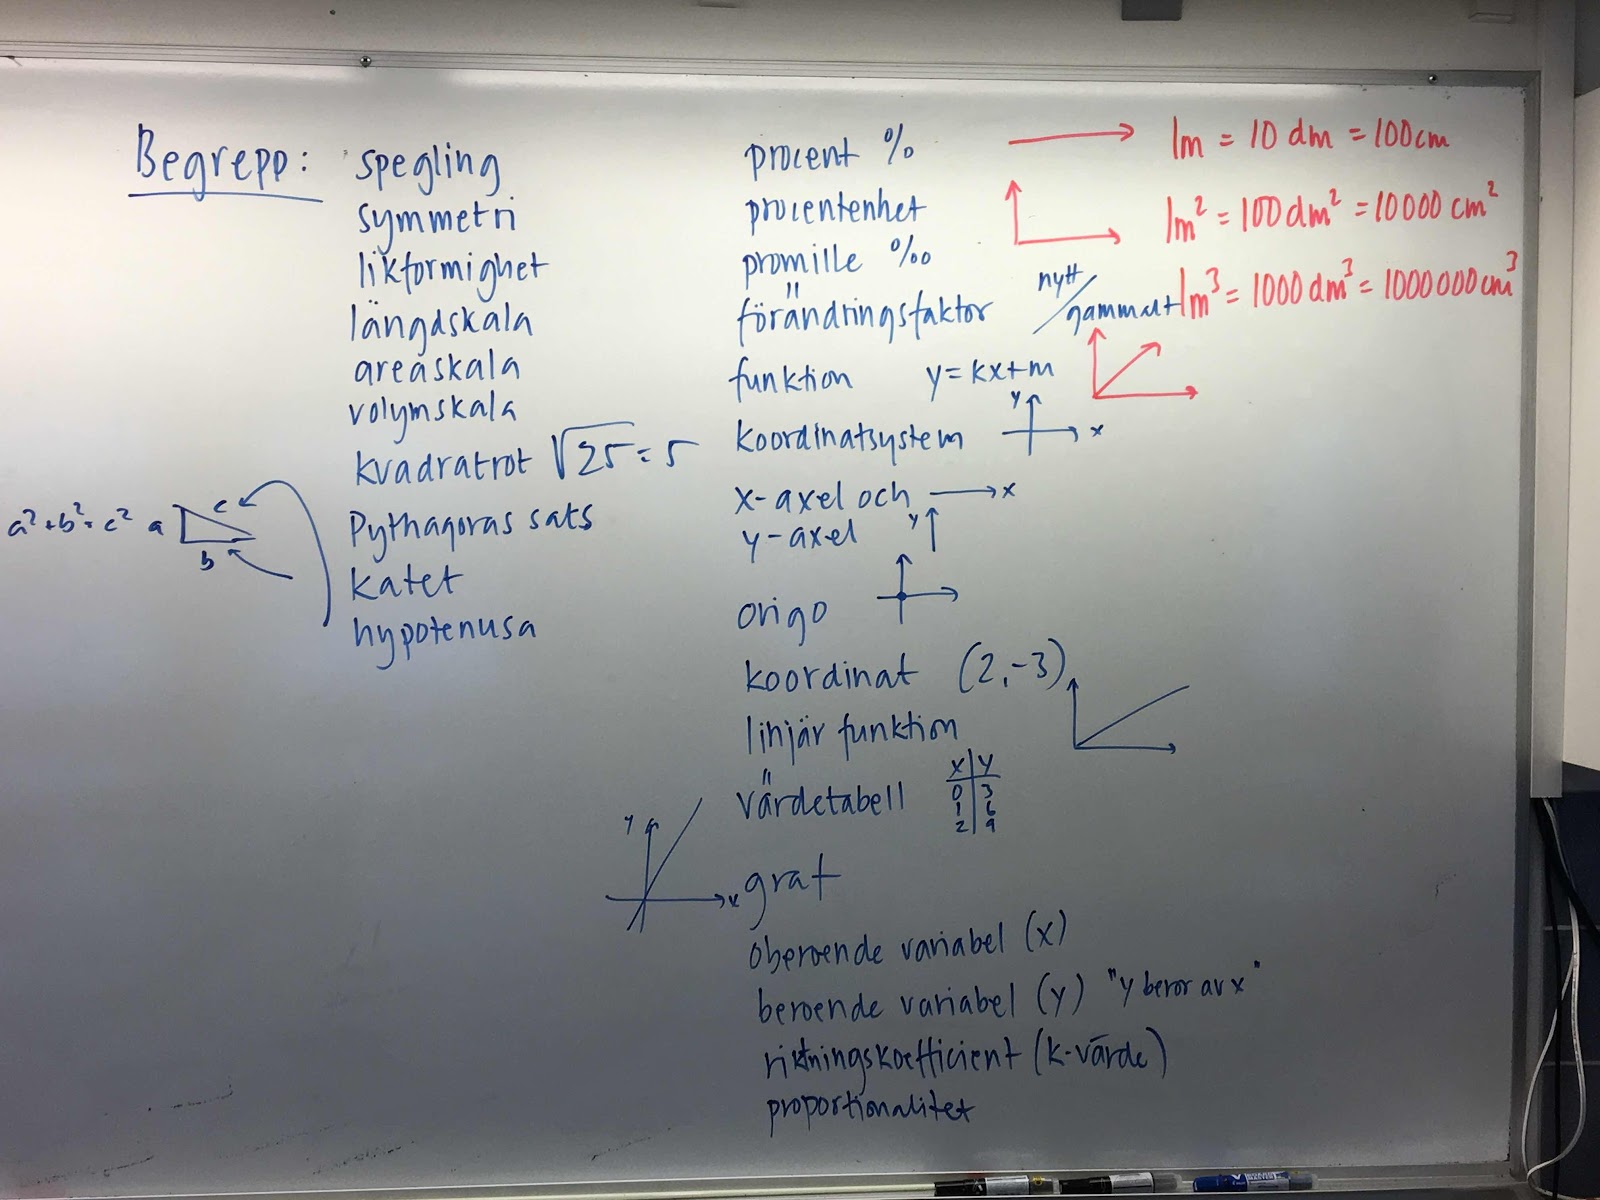 Begrepp:
spegling
symmetri
likformighet
längdskala
areaskala
volymskala
kvadratrot √25 = 5
Pythagoras sats
a² + b² = c²
a
b
c
katet
hypotenusa
procent %
procentenhet
promille ‰
förändringsfaktor nytt/gammalt
funktion y = kx+m
koordinatsystem
y
x
x-axel och
x
y-axel
y
origo
koordinat (2,-3)
linjär funktion
värdetabell
x | y
0 | 3
1 | 6
2 | 9
graf
y
x
oberoende variabel (x)
beroende variabel (y) "y beror av x"
riktningskoefficient (k-värde)
proportionalitet
1m = 10 dm = 100cm
1m² = 100 dm² = 10000 cm²
1m³ = 1000 dm³ = 1000000cm³